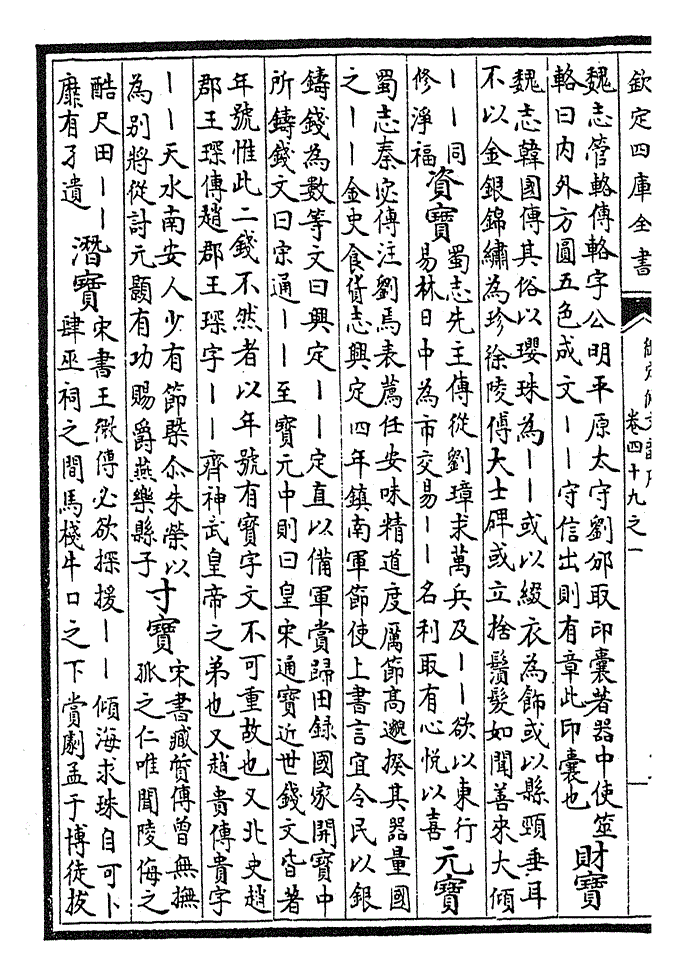 欽定四庫全書
卷四十九之一
魏志管輅傳輅字公明平原太守劉邠取印囊著器中使筮
輅曰内外方圓五色成文丨丨守信出則有章此印囊也
財寶
魏志韓國傳其俗以瓔珠為丨丨或以綴衣為飾或以縣頸垂耳
不以金銀錦繡為珍徐陵傅大士碑或立捨鬚髮如聞善來大傾
丨丨同
修淨福
資寶
蜀志先主傳從劉璋求萬兵及丨丨欲以東行
易林日中為市交易丨丨名利取有心悅以喜
元寶
蜀志秦宓傳注劉焉表薦任安味精道度厲節高邈揆其器量國
之丨丨金史食貨志興定四年鎮南軍節使上書言宜令民以銀
鑄錢為數等文曰興定丨丨定直以備軍賞歸田録國家開寶中
所鑄錢文曰宋通丨丨至寶元中則曰皇宋通寶近世錢文皆著
年號惟此二錢不然者以年號有寶字文不可重故也又北史趙
郡王琛傳趙郡王琛字丨丨齊神武皇帝之弟也又趙貴傳貴字
丨丨天水南安人少有節槩尒朱榮以
為别將從討元顥有功賜爵燕樂縣子
寸寶
宋書臧質傳曾無撫
孤之仁唯聞陵侮之
酷尺田丨丨
靡有孑遺
潛寶
宋書王微傳必欲探援丨丨傾海求珠自可卜
肆巫祠之間馬棧牛口之下賞劇孟于博徒拔